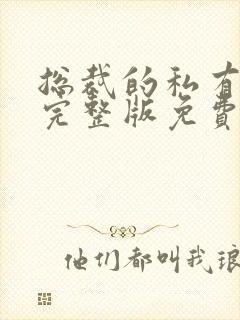 总裁的私有
完整版免费
他们都叫我琅